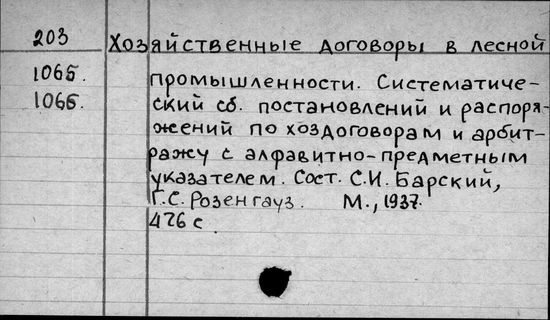 203 Хозяйственные договоры в лесной
1065. промышленности. Систематиче-
1066. ский сб. постановлений и распоря-
жений по хоздоговорам и арбит-
ражу с алфавитно-предметным
указателем. Сост. С.И. Барский,
Г.С. Розенгауз. М., 1937.
476 с.